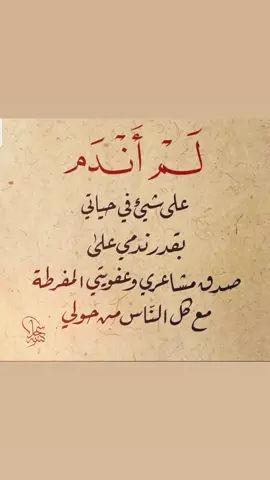 لَمْ أَنْدَم
على شيئ في حياتي
بقدر ندمي على
صدق مشاعري وعفويتي المفرطة
مع كل النّاس من حولي